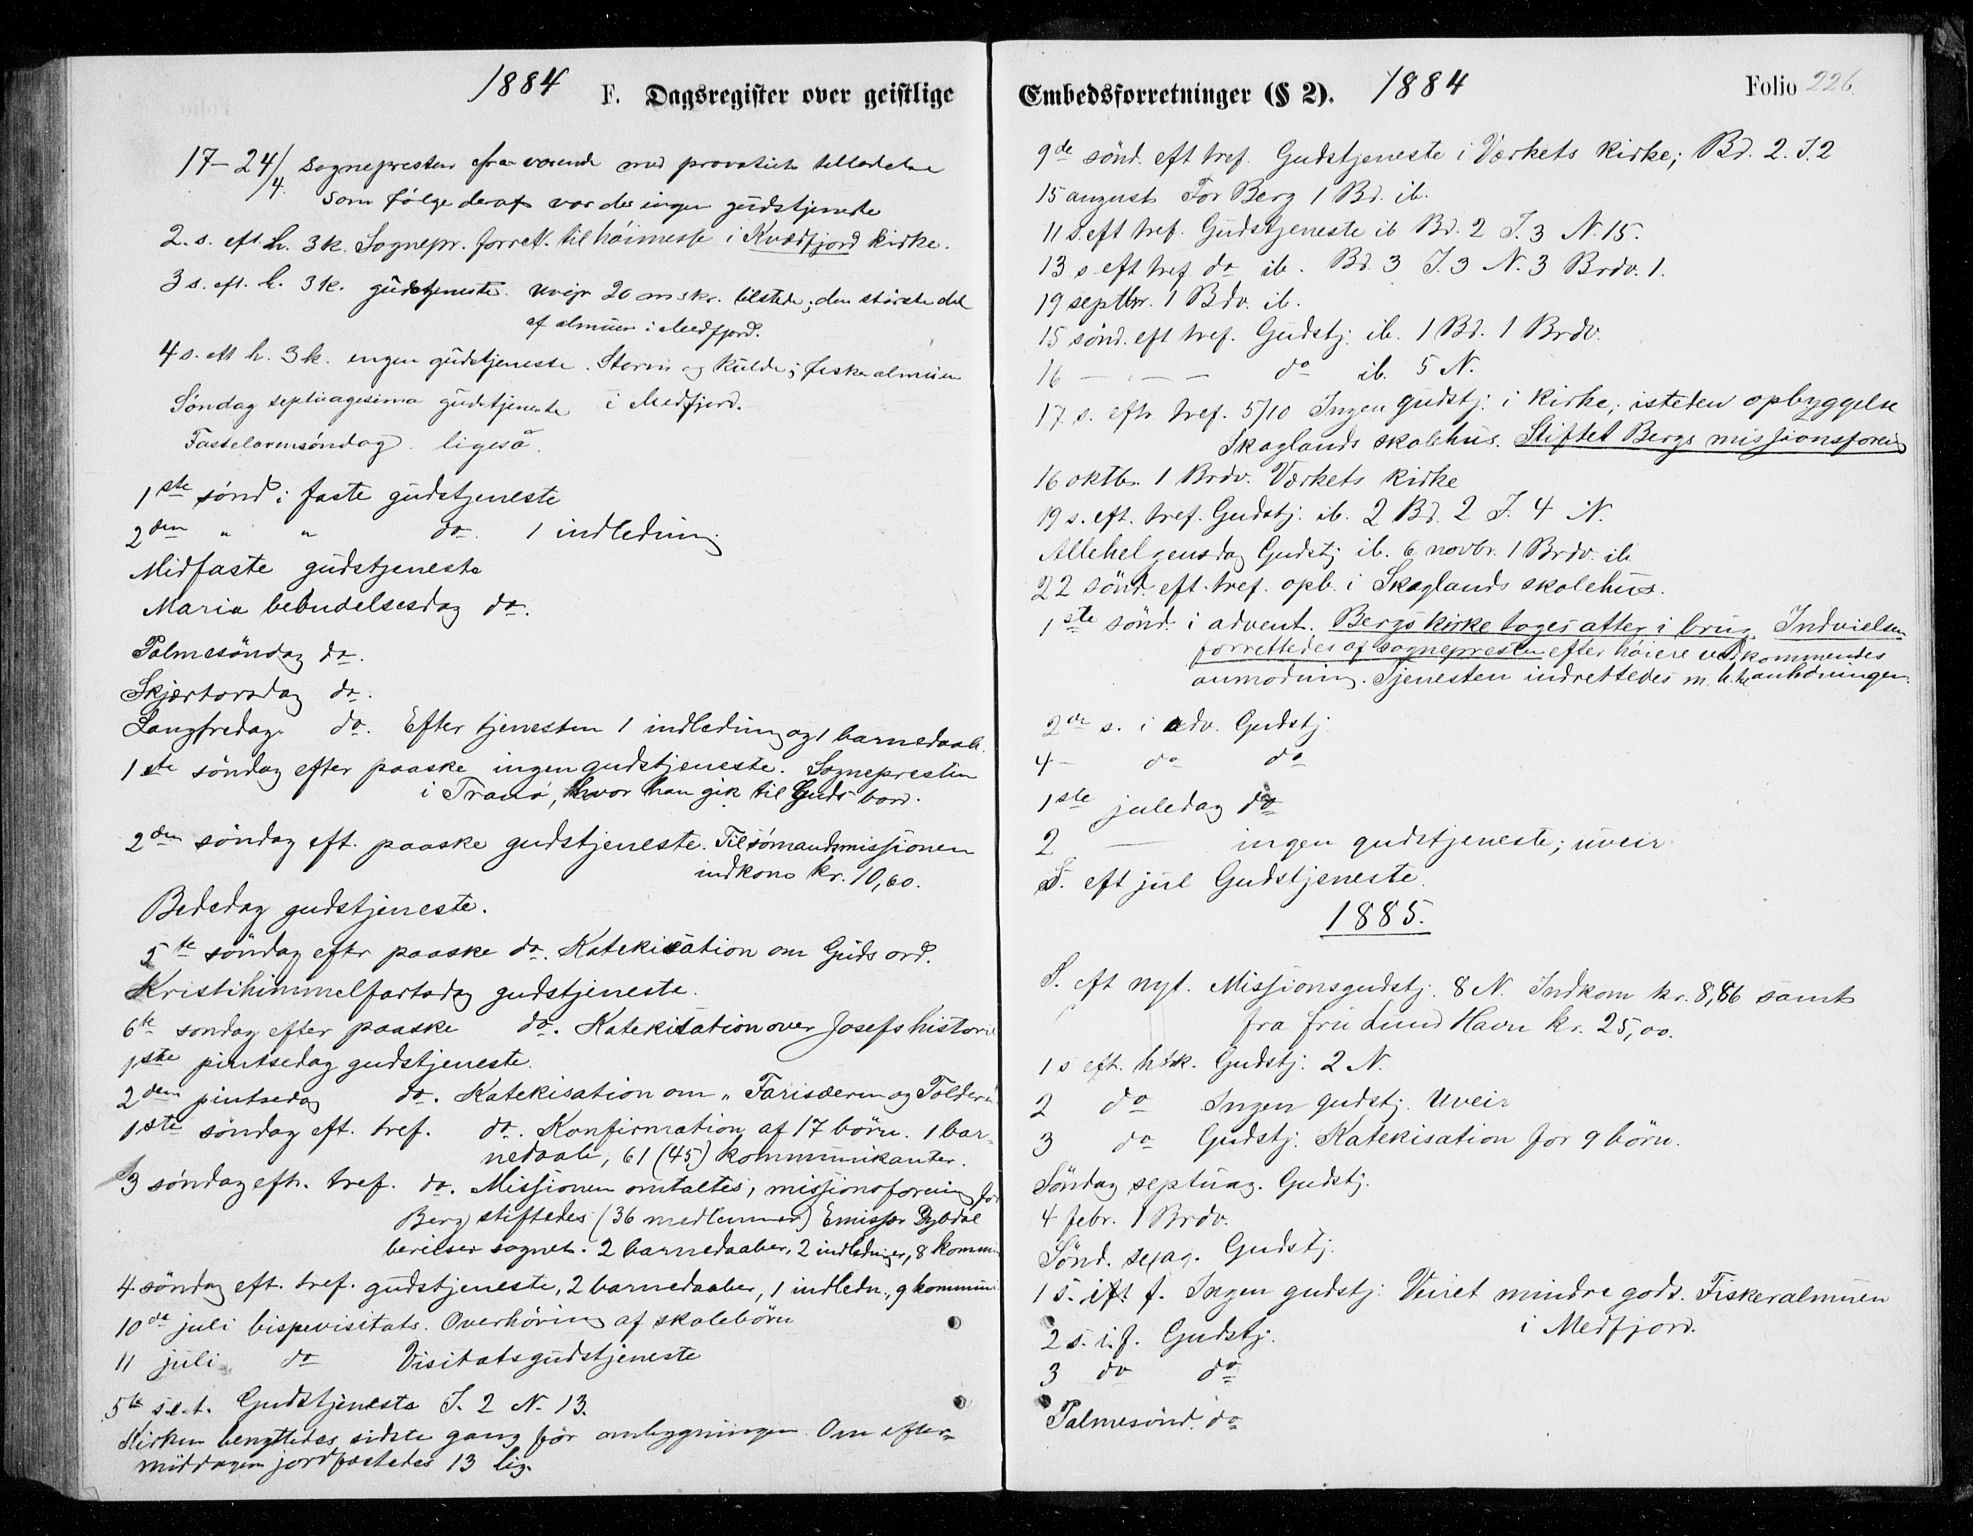 1884 F. Dagsregister over geistlige
17–24/4. Sognepresten fraværende med provstiets tilladelse
Som følge deraf var der ingen gudstjeneste
2. s. eft. h. 3 k. Sognepr. forret. til høimesse i Kvædfjord kirke.
3 s. eft. h. 3 k. gudstjeneste. uveir 20 mskr. tilstede; den største del
af almuen i Medfjord.
4 s. eft h. 3 k. ingen gudstjeneste. Storm og kulde; fiskealmuen
Søndag septuagesima gudstjeneste i Medfjord.
Fastelavensöndag. ligeså.
1ste sønd i faste gudstjeneste
2den " " do. 1 indledning
Midfaste gudstjeneste
Maria bebudelsesdag do.
Palmesöndag do.
Skjærtorsdag do.
Langfredag do. Efter tjenesten 1 indledning og 1 barnedaab.
1ste söndag efter paaske ingen gudstjeneste. Sognepresten
i Tranö, hvor han gik til Guds bord.
2den söndag eft. paaske gudstjeneste. Til sömandsmissionen
indkom kr. 10,60.
Bededag gudstjeneste.
5te söndag efter paaske do. Katekisation om Guds ord.
Kristihimmelfartsdag gudstjeneste.
6te søndag efter paaske do. Katekisation over Josefs historie
1ste pintsedag gudstjeneste.
2den pintsedag do. Katekisation om „Farisæeren og Tolderen
1ste söndag eft. tref. do. Konfirmation af 17 börn. 1 bar-
nedaab, 61 (45) kommunikanter.
3 söndag eft. tref. do. Missionen omtaltes, missionsforening for
Berg stiftedes (36 medlemmer) Emissær Dybdal
bereiser sognet. 2 barnedaaber, 2 indledninger, 8 kommun
4 söndag eft. tref. gudstjeneste, 2 barnedaaber, 1 indledn., 9 kommuni
10de juli bispevisitats. Overhöring af skolebörn
11 juli do Visitatsgudstjeneste
5te s. e. t. Gudstjeneste J. 2 N. 13.
Kirken benyttedes sidste gang för ombygningen. Om efter-
middagen jordfæstedes 13 lig.
Embedsforretninger (§ 2). 1884 Folio 226.
9de sönd. eft tref. Gudstjeneste i Værkets kirke; Bd. 2. J. 2
15 august For Berg 1 Bd. ib.
11 s. eft tref. Gudstjeneste ib Bd. 2 J. 3 N. 15.
13 s. eft tref do ib. Bd. 3 J. 3 N. 3 Brdv. 1.
19 septbr. 1 Bdv. ib.
15 sönd. eft tref. Gudstj. ib. 1 Bd. 1 Brdv.
16 — — — do ib. 5 N.
17 s. eftr tref. 5/10 Ingen gudstj. i kirke; isteden opbyggelse
Skaglands skolehus. Stiftet Bergs missionsforeng
16 oktbr. 1 Brdv. Værkets kirke
19 s. eft. tref. Gudstj. ib. 2 Bd. 2 J. 4 N.
Allehelgensdag Gudstj ib. 6 novbr. 1 Brdv. ib.
22 sönd. eft. tref. opb. i Skaglands skolehus.
1ste sönd. i advent. Bergs kirke toges atter i brug. Indvielsen
forrettedes af sognepresten efter höiere vedkommendes
anmodning. Tjenesten indrettedes m. h. t. anledningen.
2de s. i adv. Gudstj.
4 – do do
1ste juledag do
2 — ingen gudstjeneste; uveir
S. eft jul Gudstjeneste.
1885.
S. eft nyt. Missionsgudstj. 8 N. Indkom kr. 8,86 samt
fra fru Lund Havn kr. 25,00.
1 s eft. h 3 k. Gudstj. 2 N.
2 do Ingen gudstj. Uveir
3 do Gudstj. Katekisation for 9 börn.
Söndag septuag. Gudstj.
4 febr. 1 Brdv.
Sönd. sexag. Gudstj.
1 s. i f. Ingen gudstj. Veiret mindre godt. Fiskeralmuen
i Medfjord.
2 s. i. f. Gudstj.
3 do do
Palmesönd. do